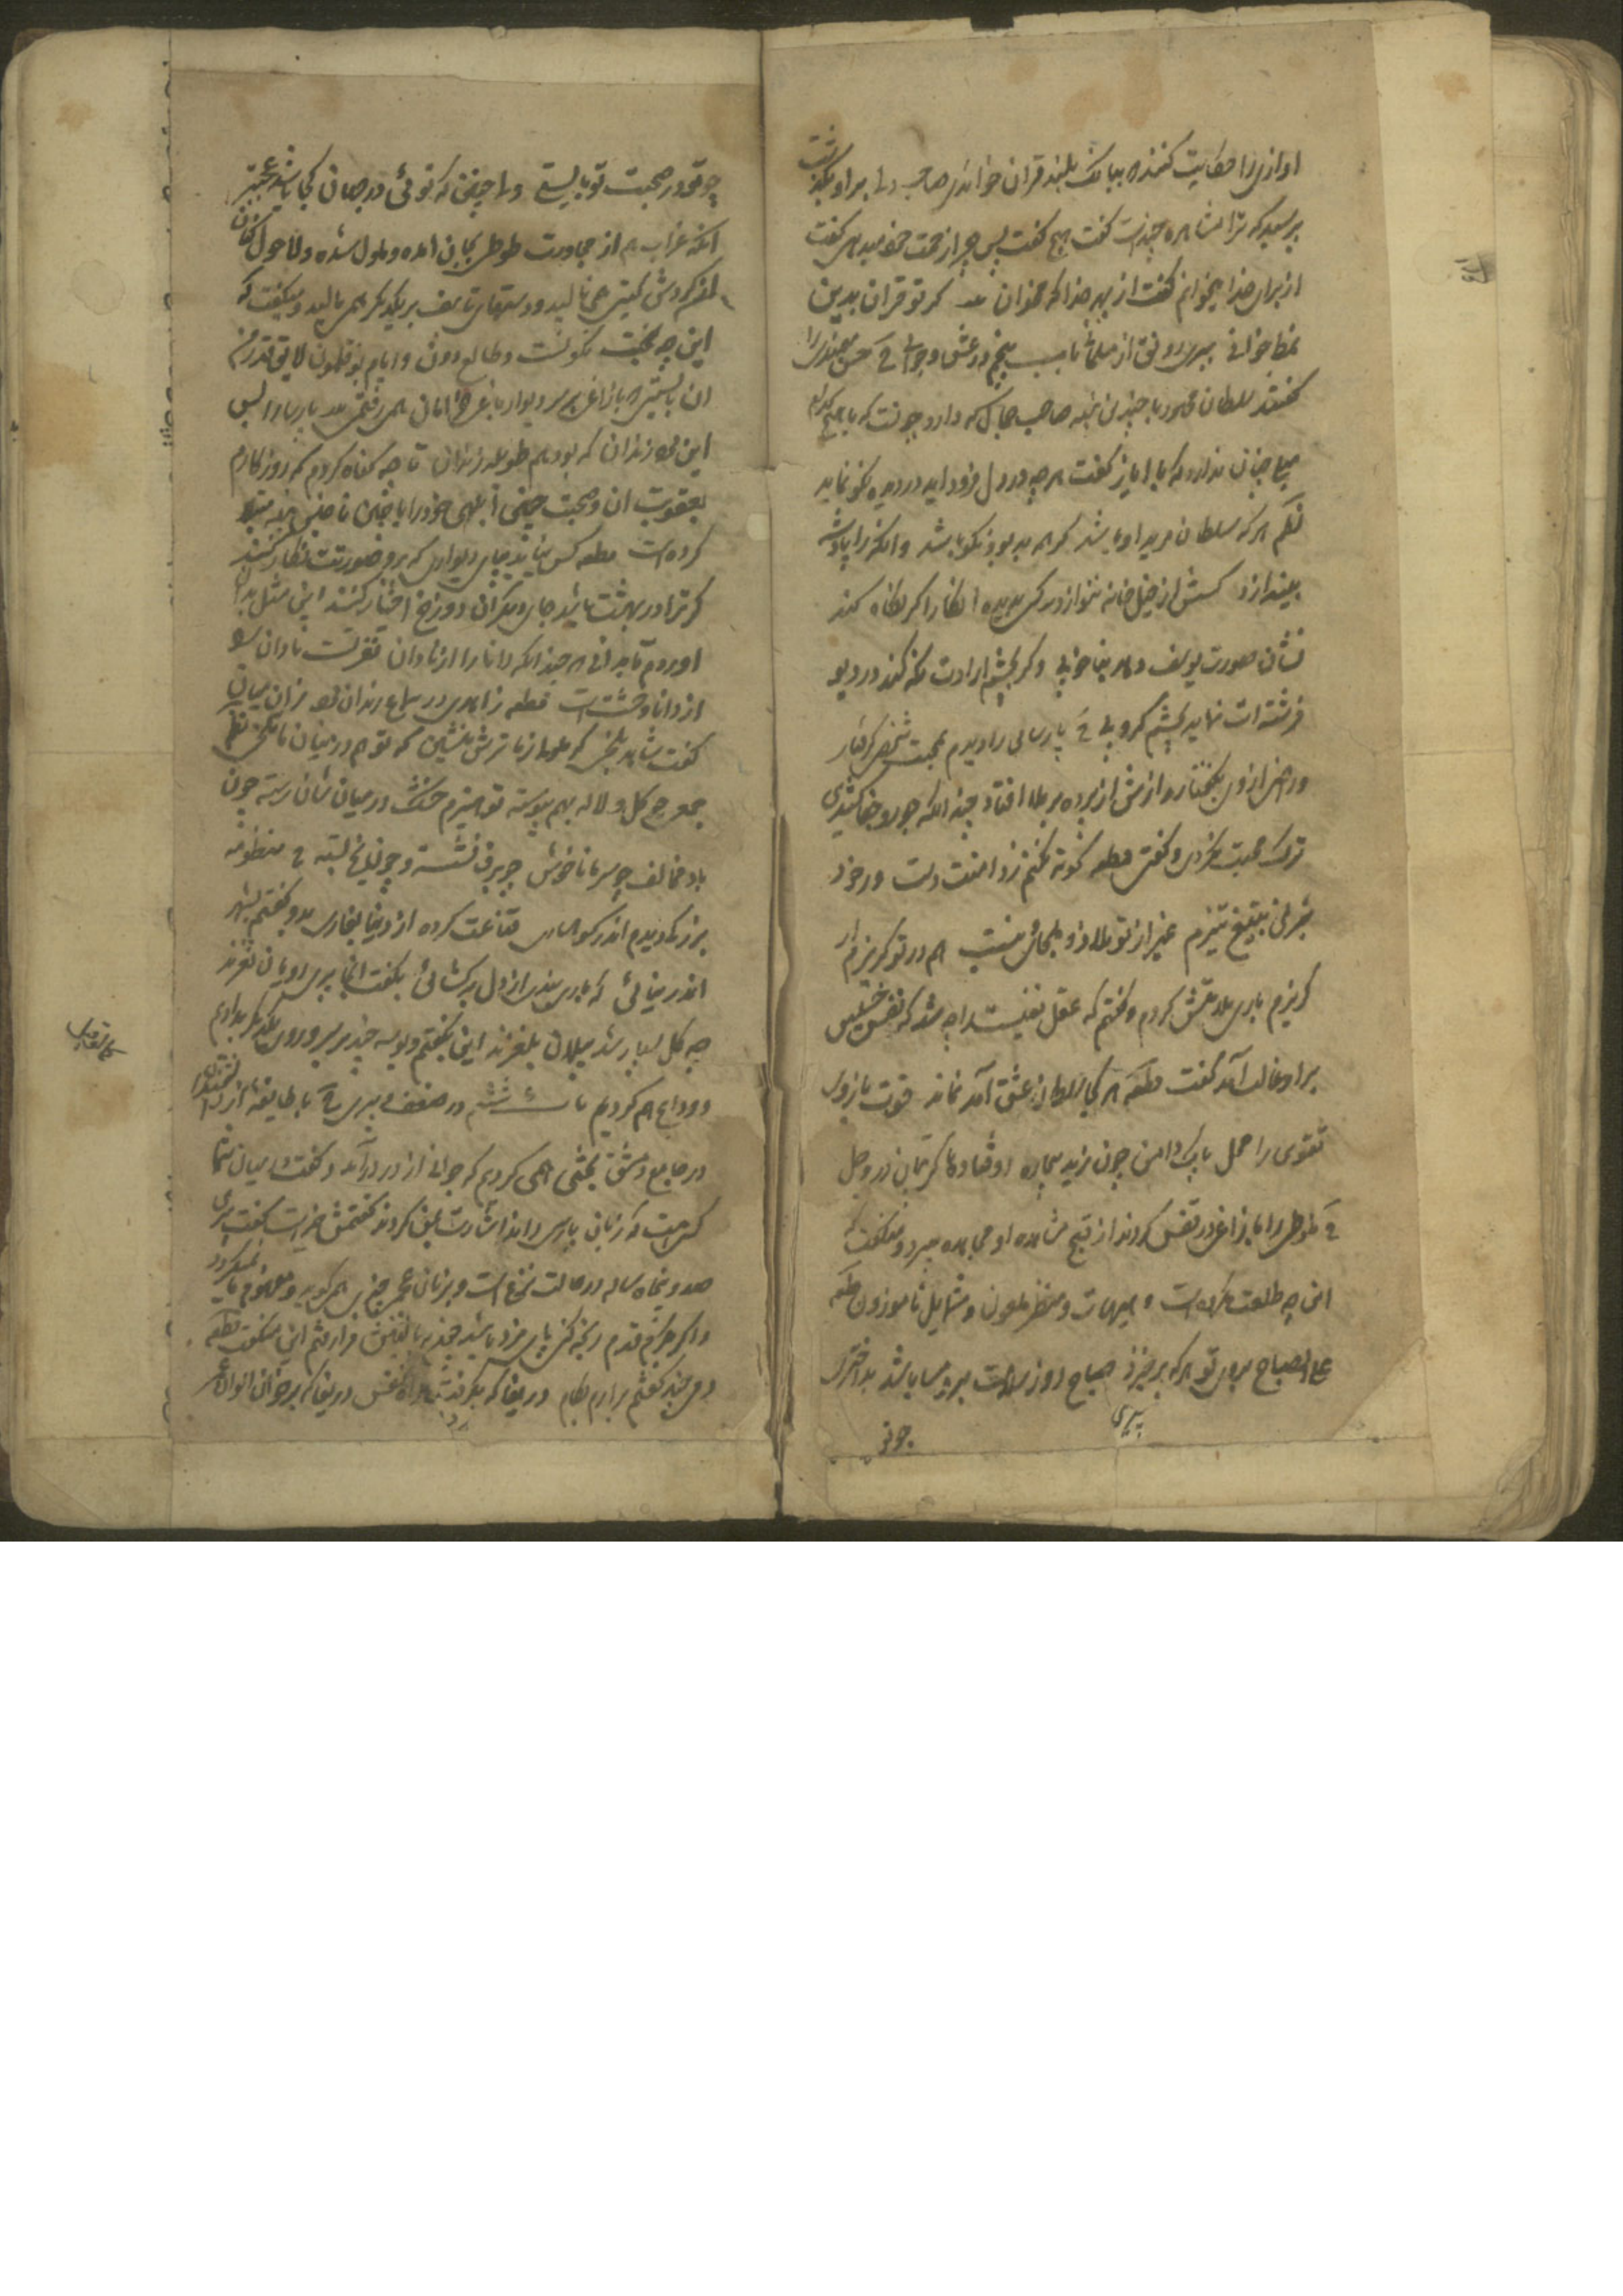 اوازی را حکایت کنند که ببانک بلند قران خواندی صاحب دلی بر او بگذشت
پرسید که ترا مشاهره چندست گفت هیچ گفت پس چرا زحمت خود میدهی گفت
از برای خدا میخوانم گفت از بهر خدا که مخوان بیت گر تو قران بدین
نمط خوانی ببری رونق از مسلمانی باب پنجم در عشق و جوانی ح حسن میمندی را
گفتند سلطان محمود با چندین بنده صاحب جمال که دارد چونست که با هیچ کدام
میل چنان ندارد که با ایاز گفت هر چه در دل فرود اید در دیده نکو نماید
نظم هر که سلطان مرید او باشد گر همه بد بود نکو باشد وانکه را پادشه
بیندازد کسش از خیل خانه ننوازد کسی بدیده انکار اگر نگاه کند
نشان صورت یوسف دهد بنا خوبی و گر بچشم ارادت نگه کند در دیو
فرشته ات نماید بچشم کروبی ح پارسائی را دیدم بمحبت شخصی گرفتار
و راضی از وی بگفتار رازش از پرده بر ملا افتاد چندانکه جور و جفا کشیدی
ترک محبت نکردی و گفتی قطعه کوته نکنم ز دامنت دست ور خود
بزنی بتیغ تیزم غیر از تو ملاذ و ملجائی نیست هم در تو گریزم ار
گریزم باری ملامتش کردم و گفتم که عقل نفیست را چه شد که نفس خسیس
بر او غالب آمد گفت قطعه هر کجا سلطان عشق آمد نماند قوت بازوی
تقوی را محل پاک دامن چون زید بیچاره اوفتاده تا گریبان در وحل
ح طوطی را با زاغی در قفس کردند از قبح مشاهده او مجاهده میبرد و میگفت که
این چه طلعت مکروه است و هیهات و منظر ملعون و شمایل ناموزون قطعه
علی الصباح بروی تو هر که بر خیزد صباح روز سلامت برو مسا باشد بد اختری
چوتو در صحبت تو بایستی ولی چنین که توئی در جهان کجا باشد عجبتر
انکه غراب هم از مجاورت طوطی بجان امده و ملول شده و لاحول کنان
از گردش گیتی همی نالید و دستهای تاسف بر یکدیگر همی مالید و میگفت که
این چه بخت نگونست و طالع دون و ایام بوقلمون لایق قدر من
ان بایستی که با زاغی بر سر دیوار باغی خرامان همی رفتمی بیت پارسا را بس
این قدر زندان که بود هم طویله رندان تا چه گناه کردم که روزگارم
بعقوبت ان در صحبت چنین ابلهی خودرای با چنین بند مبتلا
کرده است قطعه کس نیاید بپای دیواری که برو صورتت نگار کنند
گر ترا در بهشت باشد جای دیگران دوزخ اختیار کنند این مثل بدان
اوردم تا بدانی هر چندانکه دانا را از نادان نفرتست نادان را
از دانا وحشت است قطعه زاهدی در سماع رندان بود زان میان
گفت شاهد بلخی گر ملولی ز ما ترش منشین که تو هم در میان ما تلخی نظم
جمعی چو گل و لاله بهم پیوسته تو هیزم خشک در میان شان رسته چون
باد مخالف چو سرما ناخوش چو برف نشسته و چو یخ بسته ح منظومه
بزرگی دیدم اندر کوهساری قناعت کرده از دنیا بغاری بدو گفتم بشهر
اندر نیائی که باری بندی از دل برگشائی بگفت انجا پری رویان نغزند
چو گل بسیار شد پیلان بلغزند این بگفتم و بوسه چند بر سر و روی یکدیگر بدادیم
و وداع هم کردیم باب ششم در ضعف و پیری ح با طایفه از دانشمندان
در جامع دمشق بحثی همی کردیم که جوانی از در درآمد و گفت در میان شما
کس هست که زبان پارسی داند اشارت بمن کردند گفتمش خیرست گفت پیری
صد و پنجاه ساله در حالت نزع است و بزبان عجم چیزی همی گوید و مفهوم ما نمیگردد
و اگر بکرم قدم رنجه کنی مزد یابی چون ببالینش فرا رفتم این میگفت قطعه
دمی چند گفتم برارم بکام دریغا که بگرفت راه نفس دریغا که بر خوان الوان عمر